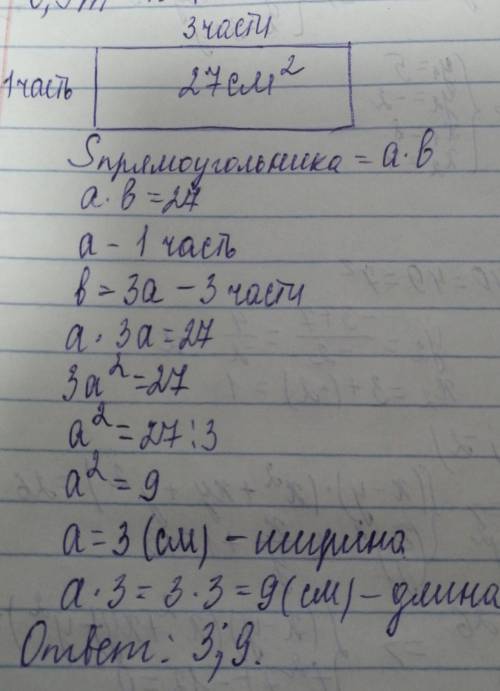 3 части
1 часть 27см²
Sпрямоугольника = а·в
а·в=27
а - 1 часть
в = 3а - 3 части
а · 3а = 27
3а² = 27
а² = 27:3
а² = 9
а = 3 (см) - ширина
а·3 = 3·3 = 9(см) - длина
Ответ: 3; 9.